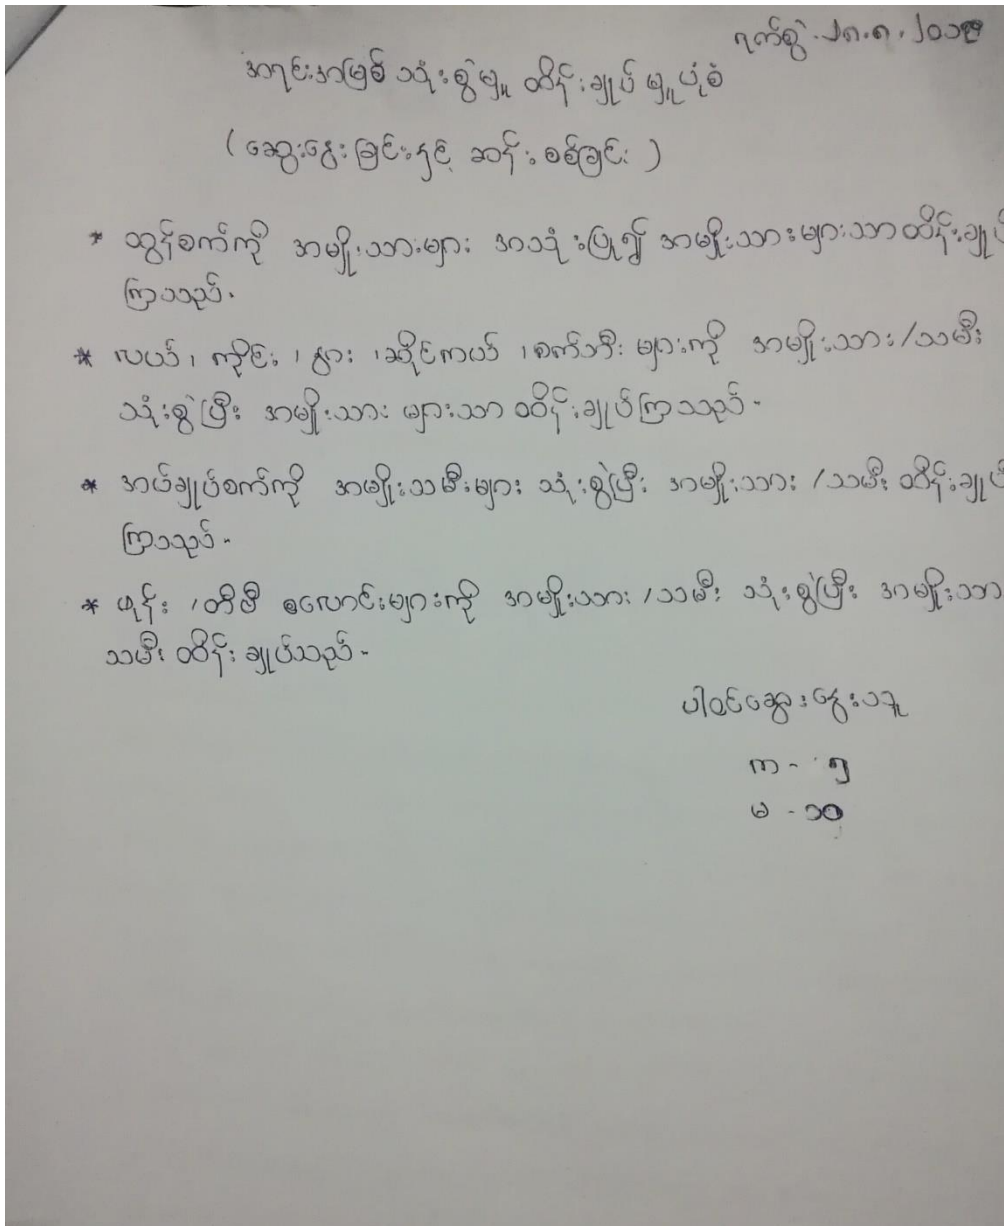 ရက်စွဲ.၂၈.၈.၂၀၁၉
အရင်းအမြစ် သုံးစွဲမှု ထိန်းချုပ်မှုပုံစံ
(ဆွေးနွေးခြင်းနှင့် ဆန်းစစ်ခြင်း)
* ထွန်စက်ကို အမျိုးသားများ အသုံးပြု၍ အမျိုးသားများသာထိန်းချုပ်
ကြသည်.
* လယ်၊ ကိုင်း ၊ နွား ၊ဆိုင်ကယ် ၊စက်ဘီး များကို အမျိုးသား/သမီး
သုံးစွဲပြီး အမျိုးသား များသာ ထိန်းချုပ်ကြသည်.
* အပ်ချုပ်စက်ကို အမျိုးသမီးများ သုံးစွဲပြီး အမျိုးသား /သမီး ထိန်းချုပ်
ကြသည်.
* ဖုန်း ၊တီဗီ စလောင်းများကို အမျိုးသား /သမီး သုံးစွဲပြီး အမျိုးသာ
သမီး ထိန်းချုပ်သည်.
ပါဝင်ဆွေးနွေးသူ
ကျ - ၅
မ - ၁၀